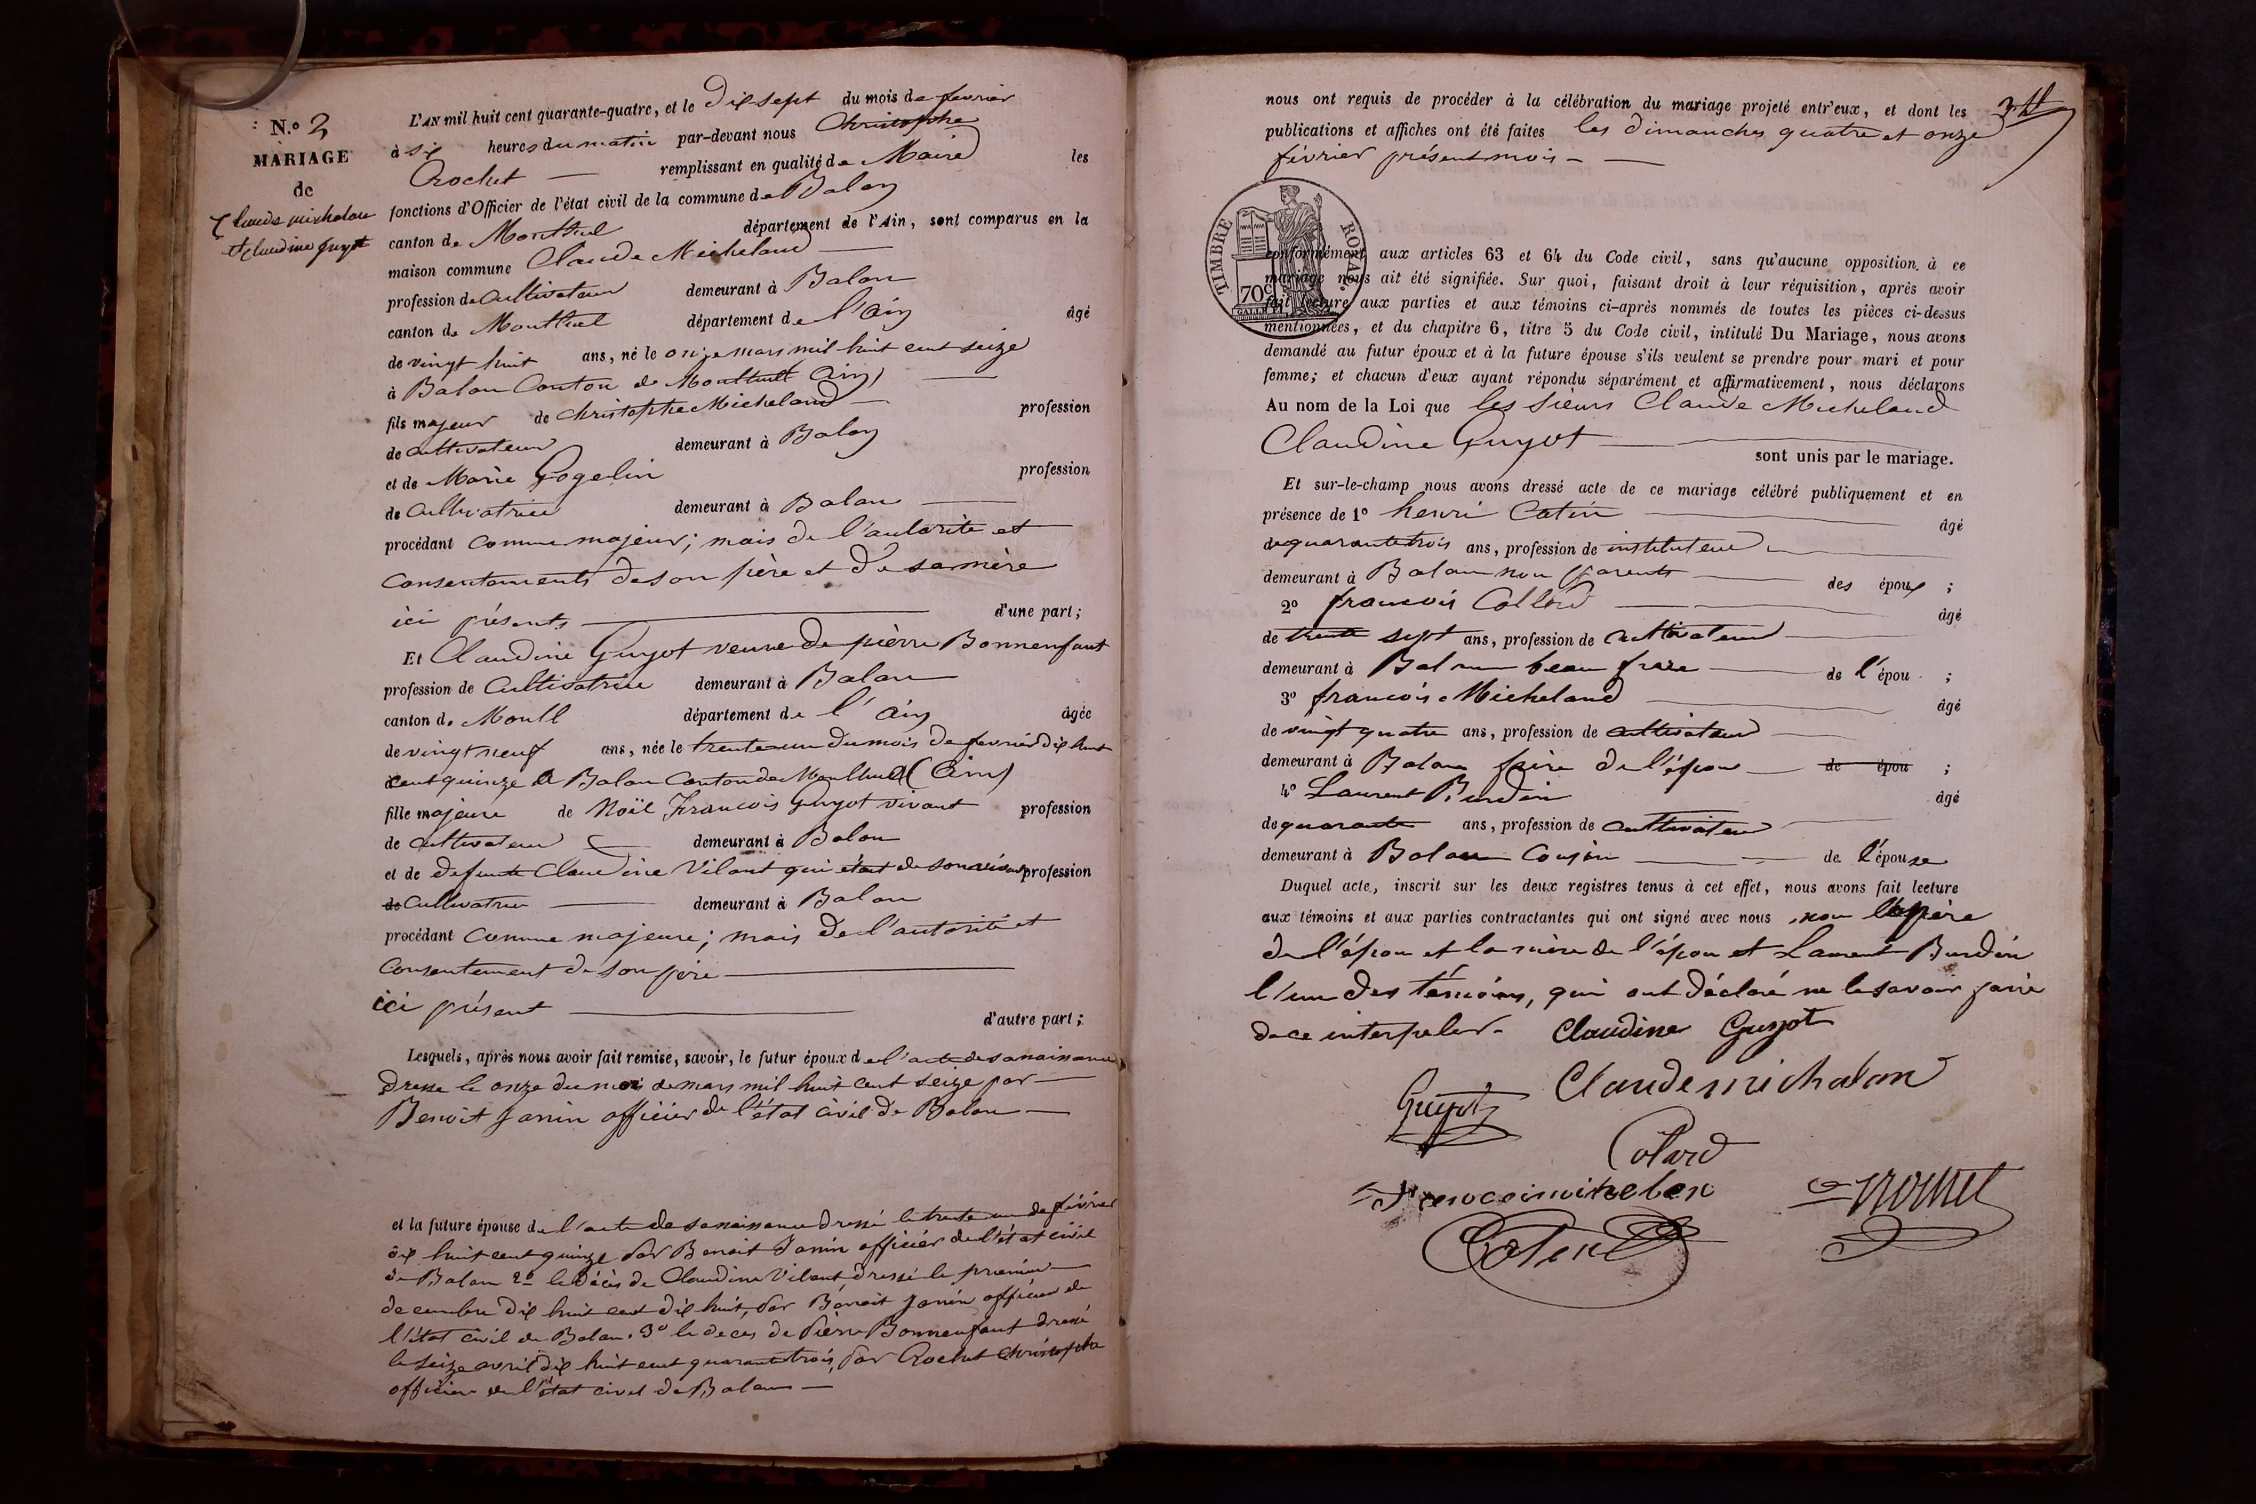 N.o 2
MARIAGE
de
Claude michalon
et claudine guyot
L'AN mil huit cent quarante-quatre, et le Dix sept du mois de fevrier
à six heures du matin par-devant nous Christophe
Crochet — remplissant en qualité de Maire les
fonctions d'Officier de l'état civil de la commune de Balan
canton de Montluel département de l'Ain, sont comparus en la
maison commune Claude Micheland
profession de Cultivateur demeurant à Balan
canton de Montluel département de l'Ain âgé
de vingt huit ans, né le onze mars mil huit cent seize
à Balan Canton de Montluel (Ain)
fils majeur de Christophe Micheland profession
de cultivateur demeurant à Balan
et de Marie Gogelin profession
de Cultivatrice demeurant à Balan
procédant comme majeur; mais de l'autorité et
consentements de son père et de sa mère
ici présents d'une part;
Et Claudine Guyot veuve de pièrre Bonnenfant
profession de Cultivatrice demeurant à Balan
canton de Montl département de l'Ain âgée
de vingt neuf ans, née le trente un du mois de fevrier dix huit
cent quinze à Balan Canton de Montluel (Ain)
fille majeure de Noël François Guyot vivant profession
de cultivateur demeurant à Balan
et de defunte Claudine Vilant qui était de son vivant profession
de Cultivatrice demeurant à Balan
procédant comme majeure; mais de l'autorité et
consentement de son père
ici présent d'autre part;
Lesquels, après nous avoir fait remise, savoir, le futur époux de l'acte de sa naissance
dressé le onze du mois de mars mil huit cent seize par
Benoit Janin officier de l'état civil de Balan
et la future épouse de l'acte de sa naissance dressé le trente un de février
dix huit cent quinze par Benoit Janin officier de l'état civil
de Balan 2o le décès de Claudine Vilant dressé le premier
decembre dix huit cent dix huit, par Benoit Janin officier de
l'état civil de Balan. 3o le deces de Pièrre Bonnenfant dressé
le seize avril dix huit cent quarante trois, par Crochet Christophe
officier de l'état civil de Balan
nous ont requis de procéder à la célébration du mariage projeté entr'eux, et dont les
publications et affiches ont été faites les dimanches quatre et onze
février présent mois
TIMBRE ROYAL.
70c
conformément aux articles 63 et 64 du Code civil, sans qu'aucune opposition à ce
mariage nous ait été signifiée. Sur quoi, faisant droit à leur réquisition, après avoir
fait lecture aux parties et aux témoins ci-après nommés de toutes les pièces ci-dessus
mentionnées, et du chapitre 6, titre 5 du Code civil, intitulé Du Mariage, nous avons
demandé au futur époux et à la future épouse s'ils veulent se prendre pour mari et pour
femme; et chacun d'eux ayant répondu séparément et affirmativement, nous déclarons
Au nom de la Loi que les sieurs Claude Micheland
Claudine Guyot
sont unis par le mariage.
Et sur-le-champ nous avons dressé acte de ce mariage célébré publiquement et en
présence de 1o henri Catin âgé
de quarante trois ans, profession de instituteur
demeurant à Balan non parents des époux ;
2o francois Collard âgé
de trente sept ans, profession de cultivateur
demeurant à Balan beau frere de l'épou ;
3o francois Micheland âgé
de vingt quatre ans, profession de cultivateur
demeurant à Balan frère de l'épou de épou ;
4o Laurent Burdin âgé
de quarante ans, profession de cultivateur
demeurant à Balan Cousin de l'épouse
Duquel acte, inscrit sur les deux registres tenus à cet effet, nous avons fait lecture
aux témoins et aux parties contractantes qui ont signé avec nous non le père
de l'épou et la mère de l'épou et Laurent Burdin
l'un des témoins, qui ont déclaré ne le savoir faire
de ce interpeler. Claudine Guyot
Guyot Claude michalon
Colard
Catin Crochet